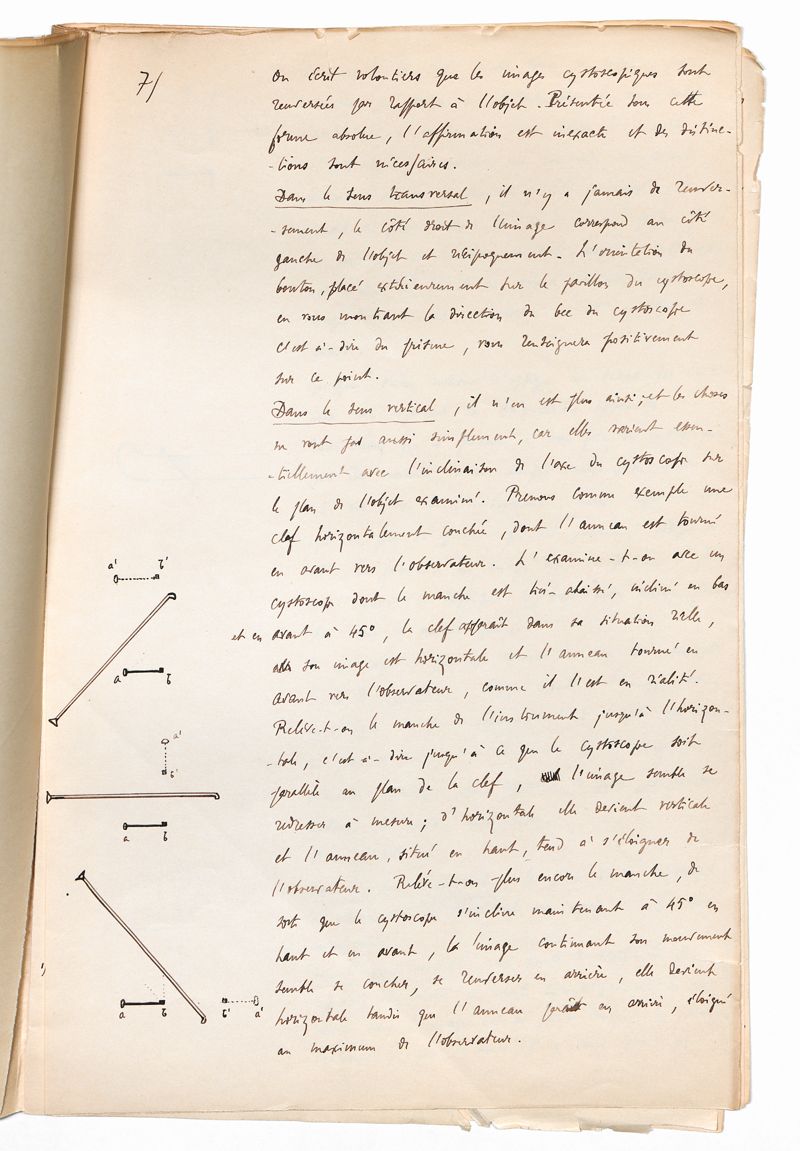 7/
On écrit volontiers que les images cystoscopiques sont
renversées par rapport à l'objet. Présentée sous cette
forme absolue, l'affirmation est inexacte et des distinc-
-tions sont nécessaires.
Dans le sens transversal, il n'y a jamais de renver-
-sement, le côté droit de l'image correspond au côté
gauche de l'objet et réciproquement. L'orientation du
bouton, placé extérieurement sur le pavillon du cystoscope,
en vous montrant la direction du bec du cystoscope
c'est à-dire du prisme, vous renseignera positivement
sur ce point.
Dans le sens vertical, il n'en est plus ainsi, et les choses
ne vont pas aussi simplement, car elles varient essen-
-tiellement avec l'inclinaison de l'axe du cystoscope sur
le plan de l'objet examiné. Prenons comme exemple une
clef horizontalement couchée, dont l'anneau est tourné
en avant vers l'observateur. L'examine-t-on avec un
cystoscope dont le manche est très-abaissé, incliné en bas
et en avant à 45°, la clef apparaît dans sa situation réelle,
son image est horizontale et l'anneau tourné en
avant vers l'observateur, comme il l'est en réalité.
Relève-t-on le manche de l'instrument jusqu'à l'horizon-
-tale, c'est à-dire jusqu'à ce que le cystoscope soit
parallèle au plan de la clef, l'image semble se
redresser à mesure; d'horizontale elle devient verticale
et l'anneau, situé en haut, tend à s'éloigner de
l'observateur. Relève-t-on plus encore le manche, de
sorte que le cystoscope s'incline maintenant à 45° en
haut et en avant, l'image continuant son mouvement
semble se coucher, se renverser en arrière, elle devient
horizontale tandis que l'anneau paraît en arrière, éloigné
au maximum de l'observateur.
a' b'
a b
a'
b'
a b
a b b' a'